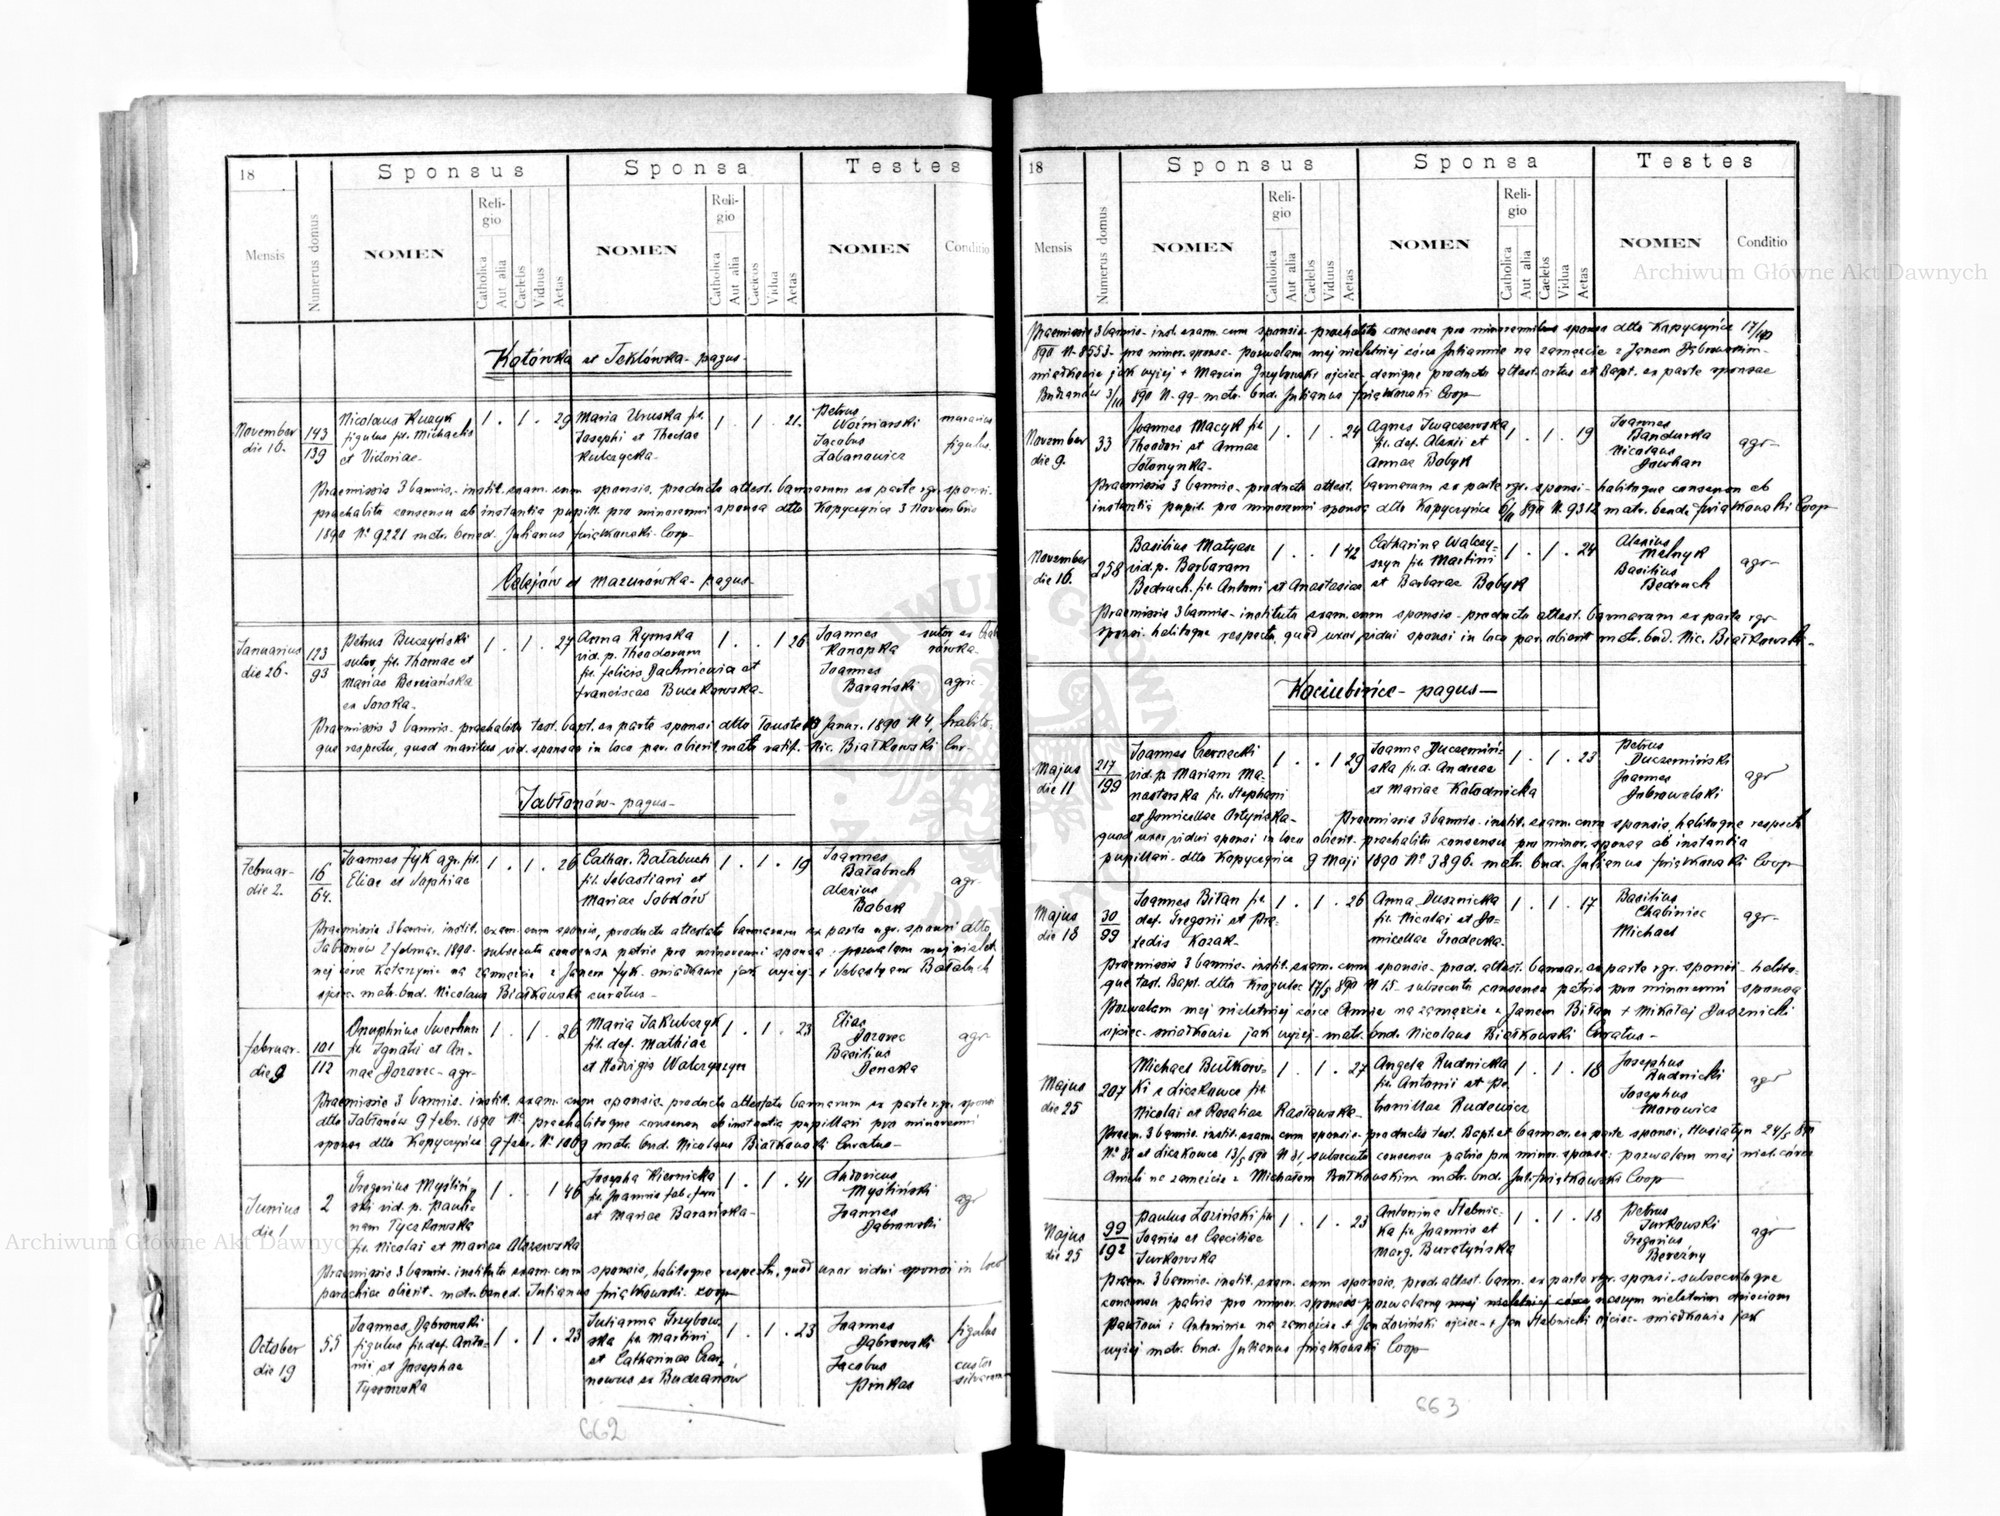 18
Sponsus
Sponsa
Testes
Mensis
Numerus domus
NOMEN
Religio
Catholica
Aut alia
Caelebs
Viduus
Aetas
NOMEN
Religio
Catholica
Aut alia
Vidua
Aetas
NOMEN
Conditio
Kotówka et Teklówka - pagus -
November
die 16.
143
139
Nicolaus
figulus fil. Michaelis
et Victoriae -
1 . 1 . 29
Maria Uruska fil.
Josephi et Theclae
1 . 1 . 21.
Petrus
Woźniarski
Jacobus
murarius
figulus
Praemissis 3 bannis - instit. exam. cum sponsis, producto attest. bannorum ex parte rgr. sponsi -
praehabito consensu ab instantia pupill. pro minorenni sponsa dtto Kopyczyńce 3 Novembris
1890 N° 9221 matr. bened. Julianus Świątkowski Coop
Celejów et Mazurówka - pagus -
Januarius
die 26.
123
93
Petrus Buczyński
sutor, fil. Thomae et
Mariae
1 . 1 . 27
Anna Rymska
vid. p. Theodorum
fil. Felicis Jachniewicz et
Franciscae Buczkowska -
1 . . 1 26
Joannes
Konopka
Joannes
Barański
sutor ex
agric -
Praemissis 3 bannis - praehabito test. bapt. ex parte sponsi dtto Touste 13 Januar. 1890 N 4, habito-
que respectu, quod maritus vid. sponsae in loco par. obierit matr. ratif. - Nic. Białkowski Cur -
Jabłonów - pagus -
Februar -
die 2.
16
64.
Joannes Fyk agr. fil.
Eliae et Sophiae
1 . 1 . 26
Cathar. Bałabuch
fil. Sebastiani et
Mariae
1 . 1 . 19
Joannes
Bałabuch
Alexius
Babak
agr -
Praemissis 3 bannis. instit. exam. cum sponsis, producto attestato bannorum ex parte rgr. sponsi dtto
Jabłonów 2 februar. 1890 - subsecuto consensu patris pro minorenni sponsa : pozwalam mej nielet
niej córce Katarzynie na zamęzcie z Janem Fyk - świadkowie jak wyżej + Sebastyan Bałabuch
ojciec - matr. bnd. Nicolaus Białkowski curatus -
Februar -
die 9
101
112
Onuphrius
fil. Ignatii et An-
nae - agr -
1 . 1 . 26
Maria Jakubczyk
fil. def. Mathiae
et Hedvigis Walczyszyn
1 . 1 . 23
Elias
Basilius
agr -
Praemissis 3 bannis. instit. exam. cum sponsis - producto attestato bannorum ex parte rgr. sponsi
dtto Jabłonów 9 febr. 1890 N° praehabitoque consensu ab instantia pupillari pro minorenni
sponsa dtto Kopyczyńce 9 febr. N° 1069 matr. bnd. Nicolaus Białkowski Curatus -
Junius
die 1
2
Gregorius Myśliń-
ski vid. p. Pauli-
nam Tyczkowska
fil. Nicolai et Mariae Olszewska
1 . . 1 46
Josepha Kiernicka
fil. Joannis fab. ferri
et Mariae Barańska -
1 . 1 . 41
Ludovicus
Myśliński
Joannes
Dąbrowski
agr
Praemissis 3 bannis - instituto exam. cum sponsis, habitoque respectu, quod uxor vidui sponsi in loco
parochiae obierit - matr. bened. Julianus Świątkowski coop
October
die 19
55
Joannes Dąbrowski
figulus fil. def. Anto-
nii et Josephae
1 . 1 . 23
Julianna Grzybow
ska fil. Martini
et Catharinae Czar-
ex Budzanów
1 . 1 . 23
Joannes
Dąbrowski
Jacobus
Pinkas
figulus
custos
silvarum
662
18
Sponsus
Sponsa
Testes
Mensis
Numerus domus
NOMEN
Religio
Catholica
Aut alia
Caelebs
Viduus
Aetas
NOMEN
Religio
Catholica
Aut alia
Caelebs
Vidua
Aetas
NOMEN
Conditio
Praemissis 3 bannis - inst. exam. cum sponsis - praehabito consensu pro minorennibus sponso dtto Kopyczyńce 17/10
890 N - 8553 - pro minor. sponsa - pozwalam mej nieletniej córce Juliannie na zamęzcie z Janem Dąbrowskim -
świadkowie jak wyżej + Marcin Grzybowski ojciec - denique producto attest. ortus et Bapt. ex parte sponsae
Budzanów 3/10 890 N. 99 - matr. bnd. Julianus Świątkowski Coop
November
die 9.
33
Joannes Macyk fil
Theodori et Annae
1 . 1 . 24
Agnes Iwaczewska
fil. def. Alexii et
Annae Babyk
1 . 1 . 19
Joannes
Bandurka
Nicolaus
Dowhan
agr -
Praemissis 3 bannis - producto attest. bannorum ex parte rgr. sponsi - habitoque consensu ab
instantia pupil. pro minorenni sponsa dtto Kopyczyńce 6/11 890 N. 9312 matr. bened. Świątkowski Coop
November
die 16.
258
Basilius Matyasz
vid. p. Barbaram
Bedruch. fil. Antoni et Anastasiae
1 . . 1 42
Catharina Walczy-
szyn fil. Martini
et Barbarae Babyk
1 . 1 . 24
Alexius
Melnyk
Basilius
Bedruch
agr -
Praemissis 3 bannis - instituto exam. cum sponsis - producto attest. bannorum ex parte rgr
sponsi - habitoque respectu, quod uxor vidui sponsi in loco par. obierit matr. bnd. Nic. Białkowski -
Kociubińce - pagus -
Majus
die 11
217
199
Joannes Czernecki
vid. p. Mariam Ma-
nasterska fil. Stephani
et Domicellae Ortyńska -
1 . . 1 29
Joanna Duczemiń-
ska fil. d. Andreae
et Mariae Kołodnicka
1 . 1 . 23
Petrus
Duczemiński
Joannes
Dobrowolski
agr
Praemissis 3 bannis - instit. exam. cum sponsis, habitoque respectu
quod uxor vidui sponsi in loco obierit - praehabito consensu pro minor. sponsa ab instantia
pupillari - dtto Kopyczyńce 9 Maji 1890 N° 3896. matr. bnd. Julianus Świątkowski Coop -
Majus
die 18
30
99
Joannes Biłan fil.
def. Gregorii et Pra-
xedis Kozak -
1 . 1 . 26
Anna Dusznicka
fil. Nicolai et Do-
micellae Gradecka -
1 . 1 . 17
Basilius
Chabiniec
Michael
agr -
Praemissis 3 bannis - instit. exam. cum sponsis - prod. attest. bannor. ex parte rgr. sponsi - habito-
que test. Bapt. dtto Krogulec 17/5 890 N 15 - subsecuto consensu patris pro minorenni sponsa
Pozwalam mej nieletniej córce Annie na zamęzcie z Janem Biłan + Mikołaj Dusznicki
ojciec - świadkowie jak wyżej - matr. bnd. Nicolaus Białkowski Curatus -
Majus
die 25
207
Michael Bułkow-
ki e Liczkowce fil.
Nicolai et Rosaliae Rasławska -
1 . 1 . 27
Angela Rudnicka
fil. Antonii et Pe-
tronillae Rudewicz
1 . 1 . 18
Josephus
Rudnicki
Josephus
Morowicz
agr
Praem. 3 bannis. instit. exam. cum sponsis - productis test. Bapt. et bannor. ex parte sponsi, Husiatyn 24/5 890
N° 81 et Liczkowce 13/5 890 N 31, subsecuto consensu patris pro minor. sponsa : pozwalam mej nielet. córce
Anieli na zamęzcie z Michałem Bułkowskim matr. bnd. Jul. Świątkowski Coop
Majus
die 25
99
192
Paulus Łoziński fil
Joannis et Caeciliae
Jurkowska
1 . 1 . 23
Antonina Stebnic-
ka fil. Joannis et
Marg. Buratyńska
1 . 1 . 18
Petrus
Jurkowski
Gregorius
Bereźny
agr
Praem. 3 bannis - instit. exam. cum sponsis, prod. attest. bann. ex parte rgr. sponsi - subsecutoque
consensu patris pro minor. sponsis pozwalamy mej nieletniej córce naszym nieletnim dzieciom
Pawłowi i Antoninie na zamęzcie + Jan Łoziński ojciec - + Jan Stebnicki ojciec - świadkowie jak
wyżej matr. bnd. Julianus Świątkowski Coop
663
Archiwum Główne Akt Dawnych
Archiwum Główne Akt Dawnych